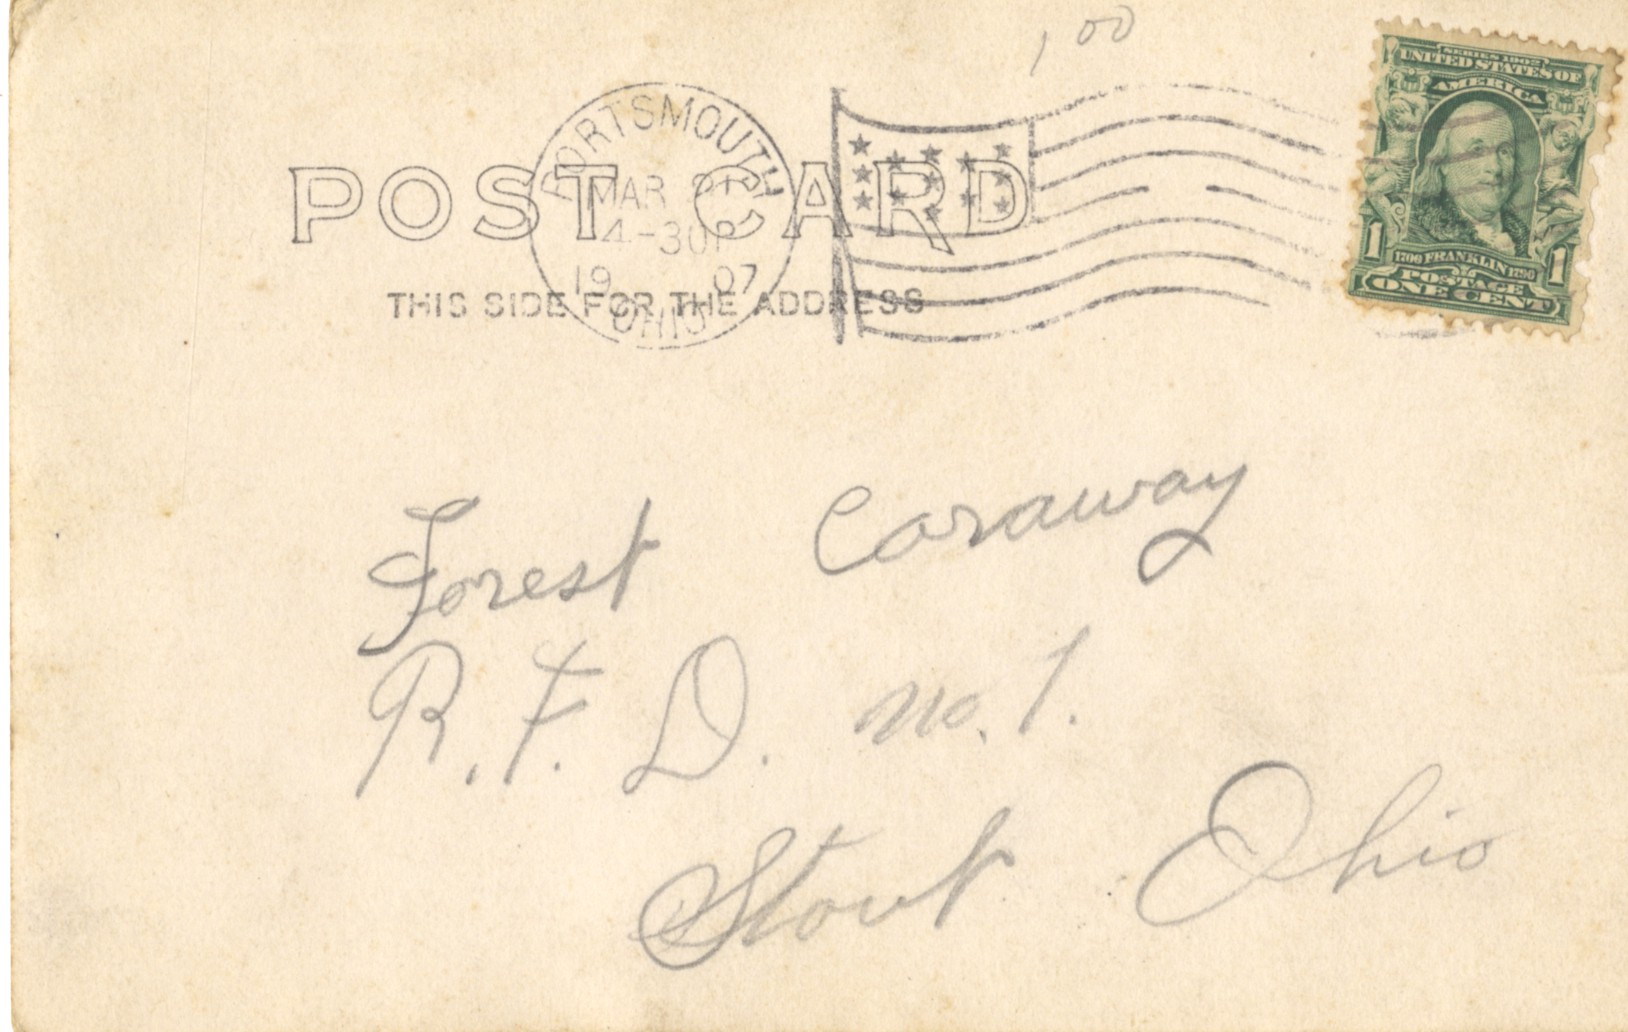 1,00
SERIES 1902
UNITED STATES OF
AMERICA
1 1
1706 FRANKLIN 1790
POSTAGE
ONE CENT
PORTSMOUTH
MAR
4-30P
19 07
OHIO
POST CARD
THIS SIDE FOR THE ADDRESS
Forest Caraway
R.F.D. no. 1.
Stout Ohio